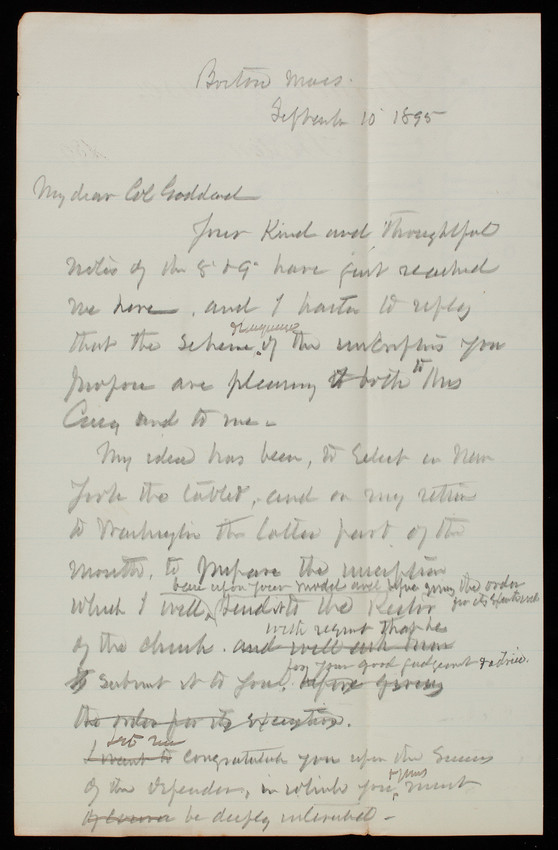 Boston Mass.
September 10 1895
My dear Col Goddard
Your Kind and thoughtful
notes of the 8 & 9" have just reached
me here, and I hasten to reply
that the scheme of the inscriptions you
propose are pleasing to both to Mrs
Casey and to me.
My idea has been, to select in New
York the tablet, and on my return
to Washington the latter part of the
month, to prepare the inscription
base upon your model and before giving the order
for its execution
which I will send it to the Rector
with request that he
of the church. and will ask him
for your good judgement & advice.
to submit it to you, before giving
the order for its execution.
Let me
I want to congratulate you upon the success
of the defender, in which you & yours must
be deeply interested -